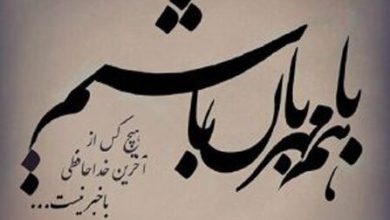 با هم مهربان باشیم
هیچ کس از
آخرین خداحافظی
با خبر نیست...